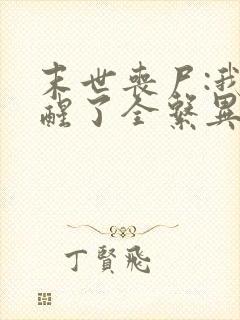 末世丧尸:我
醒了全系異
丁賢飛